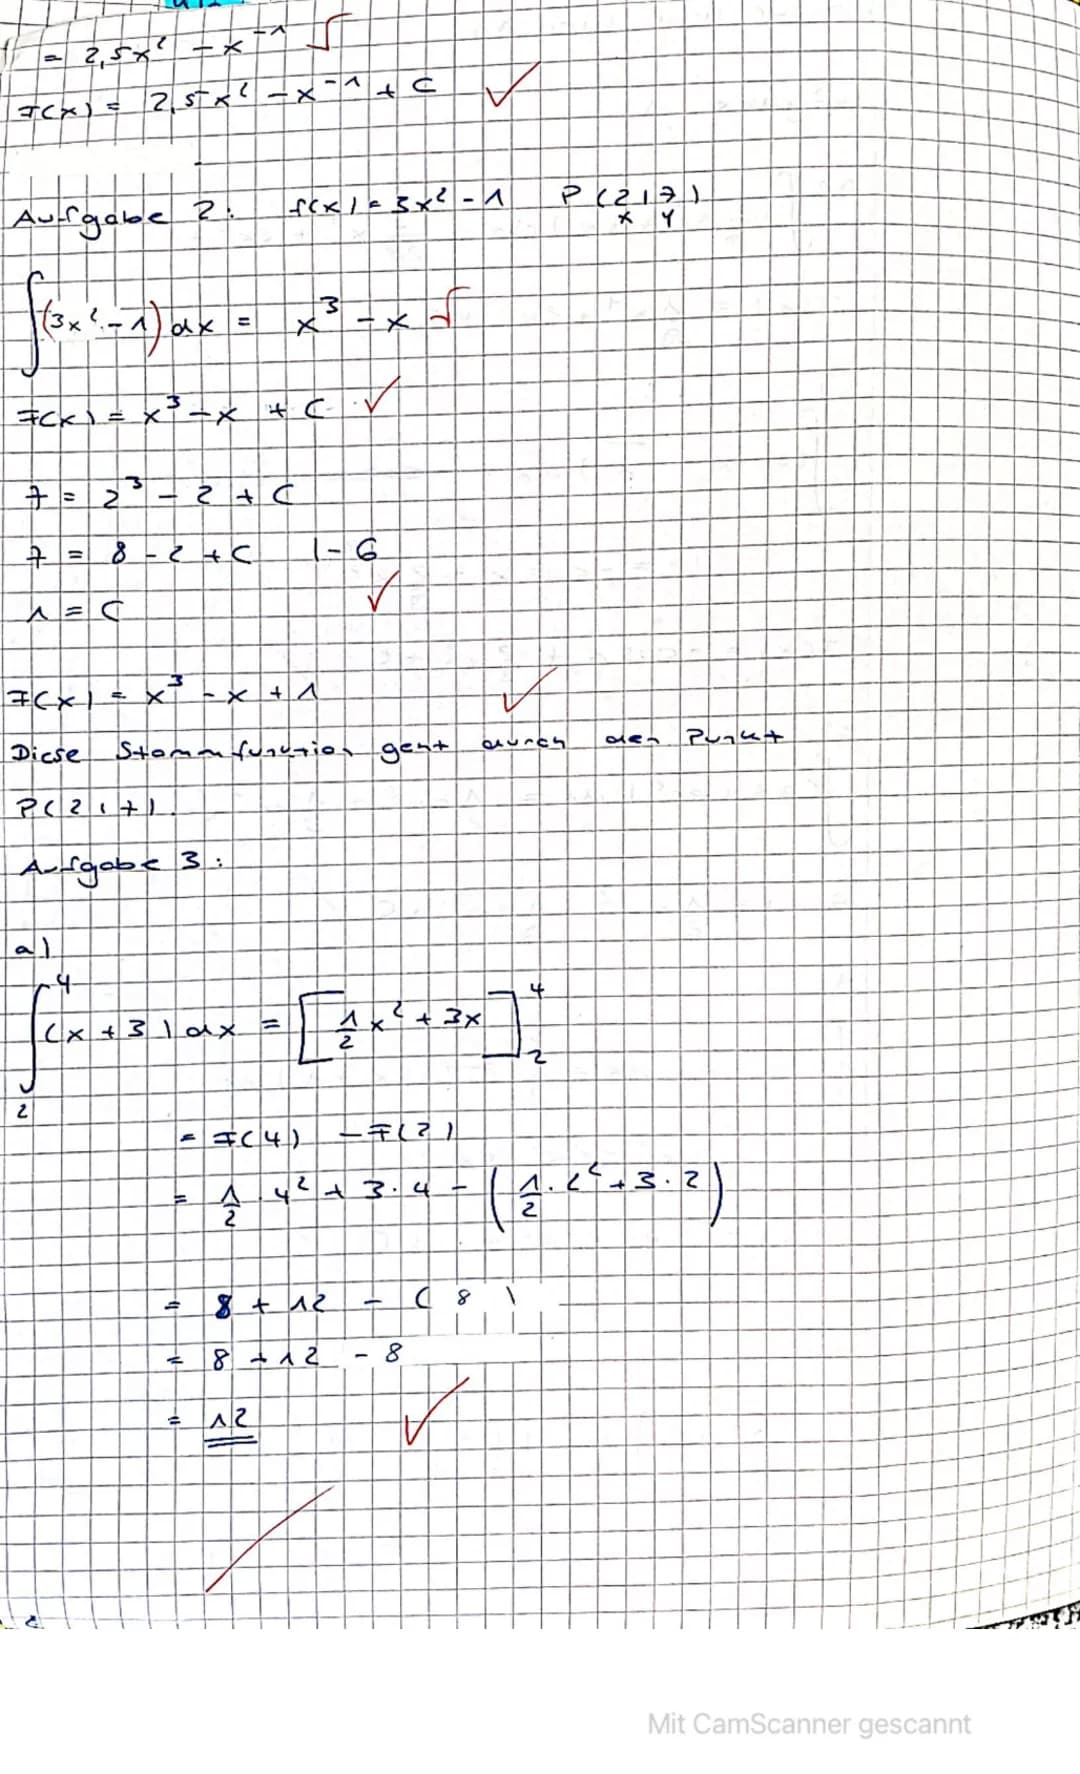 = 2,5x² - x⁻¹
F(x) = 2,5x² - x⁻¹ + C
Aufgabe 2: f(x) = 3x² - 1 P(2|7)
x y
∫(3x² - 1)dx = x³ - x
F(x) = x³ - x + C
7 = 2³ - 2 + C
7 = 8 - 2 + C |- 6
1 = C
F(x) = x³ - x + 1
Diese Stammfunktion geht durch den Punkt
P(2|7).
Aufgabe 3:
a)
∫₂⁴ (x + 3) dx = [1/2 x² + 3x]₂⁴
= F(4) - F(2)
= 1/2 · 4² + 3 · 4 - (1/2 · 2² + 3 · 2)
= 8 + 12 - ( 8 )
= 8 + 12 - 8
= 12
Mit CamScanner gescannt